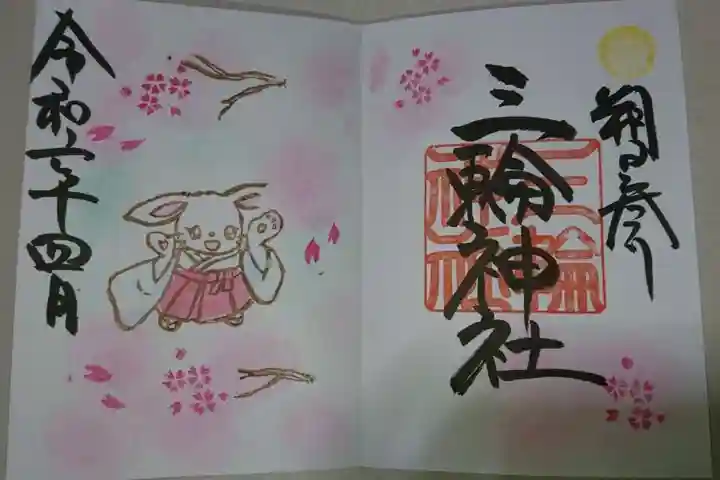 朔日参り
三輪神社
三輪
神社
令和六年四月